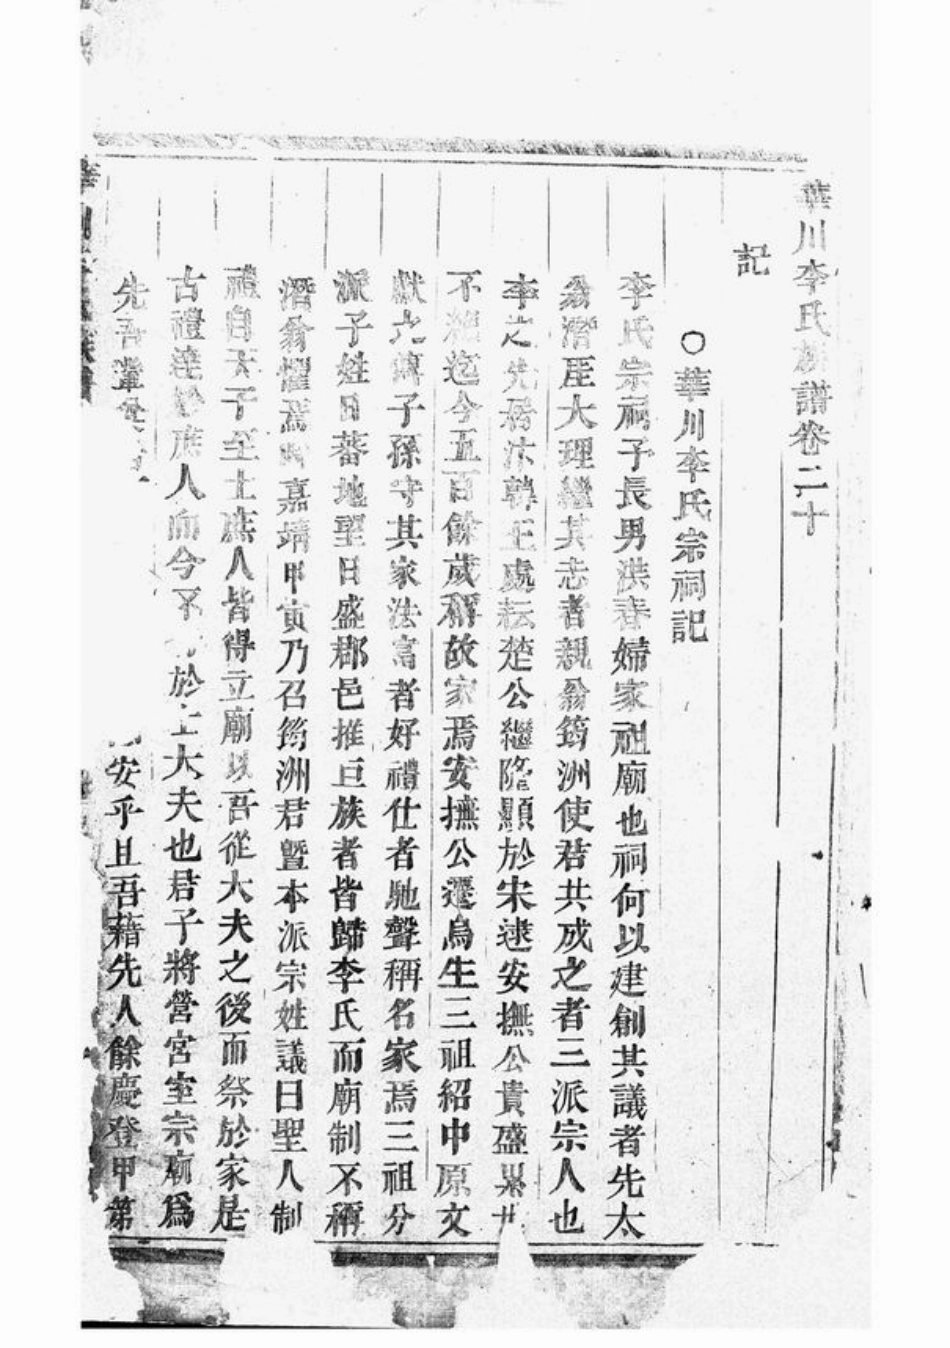 華川李氏族譜卷二十
記
○華川李氏宗祠記
李氏宗祠予長男洪春婦家祖廟也祠何以建創其議者先太
翁潛厓大理繼其志者親翁筠洲使君共成之者三派宗人也
李之先居汴韓王處耘楚公繼隆顯於宋逮安撫公貴盛累
不絕迄今五百餘歲稱故家焉安撫公遷烏生三祖紹中原文
獻之傳子孫守其家法富者好禮仕者馳聲稱名家焉三祖分
派子姓日蕃地望日盛郡邑推巨族者皆歸李氏而廟制不稱
潛翁懼焉時嘉靖甲寅乃召筠洲君暨本派宗姓議曰聖人制
禮自天子至士庶人皆得立廟以吾從大夫之後而祭於家是
古禮達於庶人而今不於士大夫也君子將營宮室宗廟爲
先吾輩安乎且吾藉先人餘慶登甲第